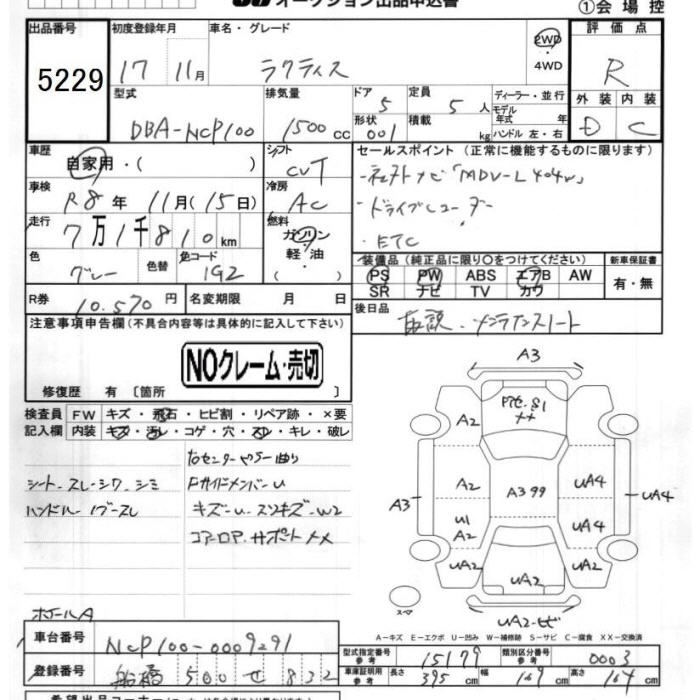 オークション出品申込書
①会場控
出品番号 初度登録年月 車名・グレード 評価点
5229 17 11月 ラクティス 2WD・4WD R
型式 排気量 ドア 5 定員 5 人 ディーラー・並行 外装 内装
DBA-NCP100 1500cc 形状 001 積載 kg モデル年式 年式 ハンドル 左・右 D C
車歴 シフト セールスポイント (正常に機能するものに限ります)
自家用・( ) CVT
車検 冷房
R8年 11月(15日) AC ・ドライブレコーダー
走行 燃料
7万1千810km ガソリン・軽油 ・ETC
色 色替 色コード 装備品 (純正品に限り○をつけてください) 新車保証書
グレー 1G2 PS PW ABS エアB AW 有・無
SR ナビ TV カワ
R券 10.570円 名変期限 月 日 後日品
注意事項申告欄(不具合内容等は具体的に記入して下さい) 取説・メンテナンスノート
NOクレーム・売切
修復歴 有 〔箇所 〕
検査員 FW キズ・飛石・ヒビ割・リペア跡・×要
記入欄 内装 キズ・汚レ・コゲ・穴・スレ・キレ・破レ
シート スレ・シワ シミ Fサイドメンバー U
ハンドル キズ-U
コアロア サポート XX
ホイールA
A3
A2
A2 A3 99 UA4
A3 UA4
U1 A2 UA4
UA2 UA2 UA2
スマ
A-キズ E-エクボ U-凹み W-補修跡 S-サビ C-腐食 XX-交換済
車台番号 NCP100-0009291
登録番号 船橋 500 せ 832
型式指定番号 参考 15179 類別区分番号 参考 0003
車庫証明用 参考 長さ 395cm 幅 169cm 高さ 164cm